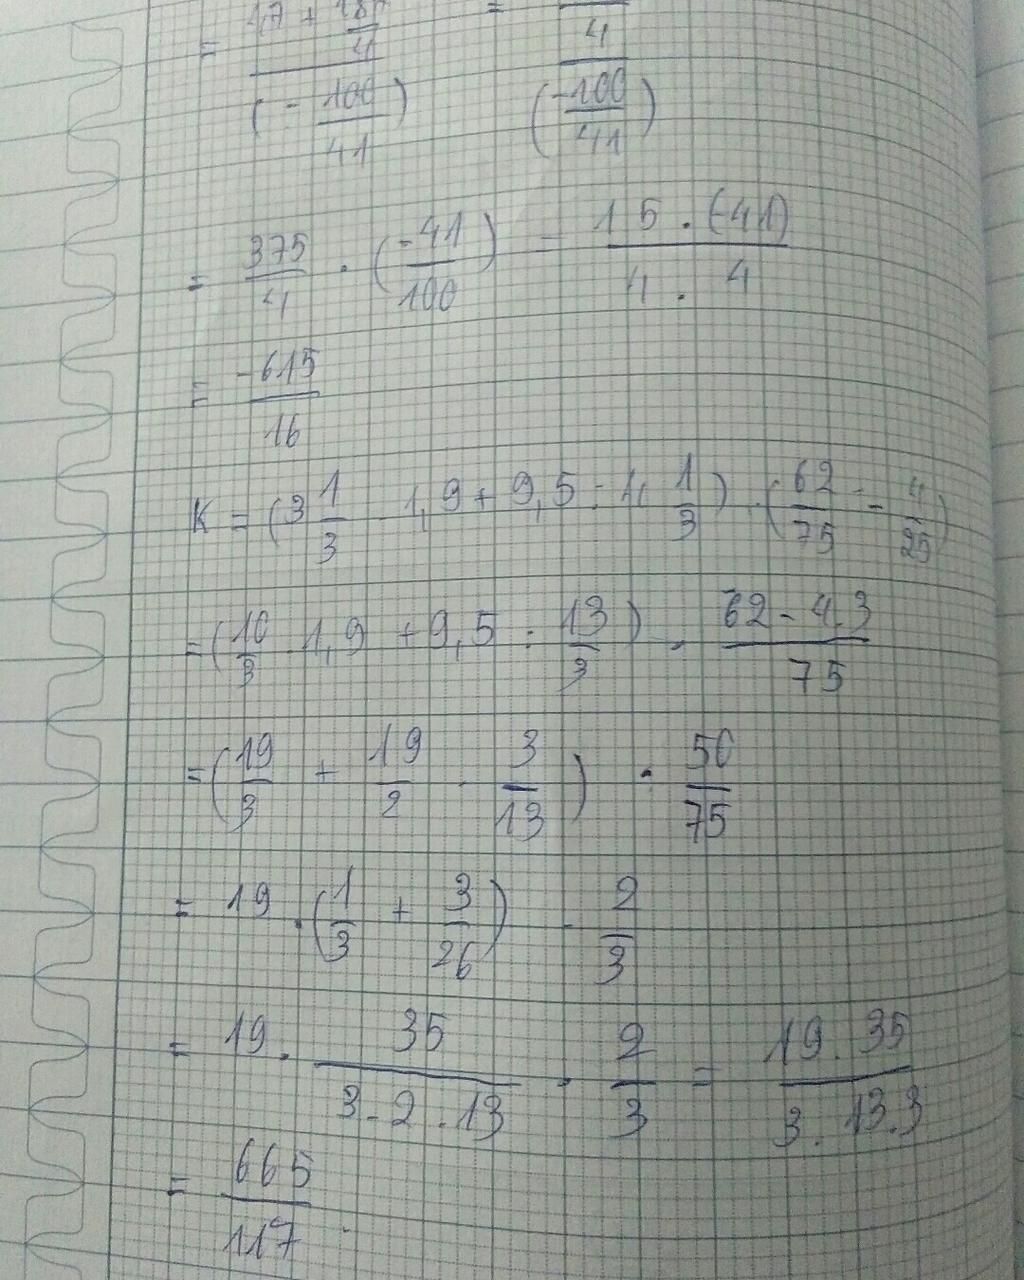 = 
4
(- 100/41) (-100/41)
= 375/4 . (-41/100) = 15 . (-41)/4 . 4
= -615/16
K = (3 1/3 . 1,9 + 9,5 : 4 1/3) . (62/75 - 4/25)
= (10/3 . 1,9 + 9,5 : 13/3) . 62 - 4.3/75
= (19/3 + 19/2 . 3/13) . 50/75
= 19 . (1/3 + 3/26) . 2/3
= 19 . 35/3 . 2 . 13 . 2/3 = 19 . 35/3 . 13 . 3
= 665/117